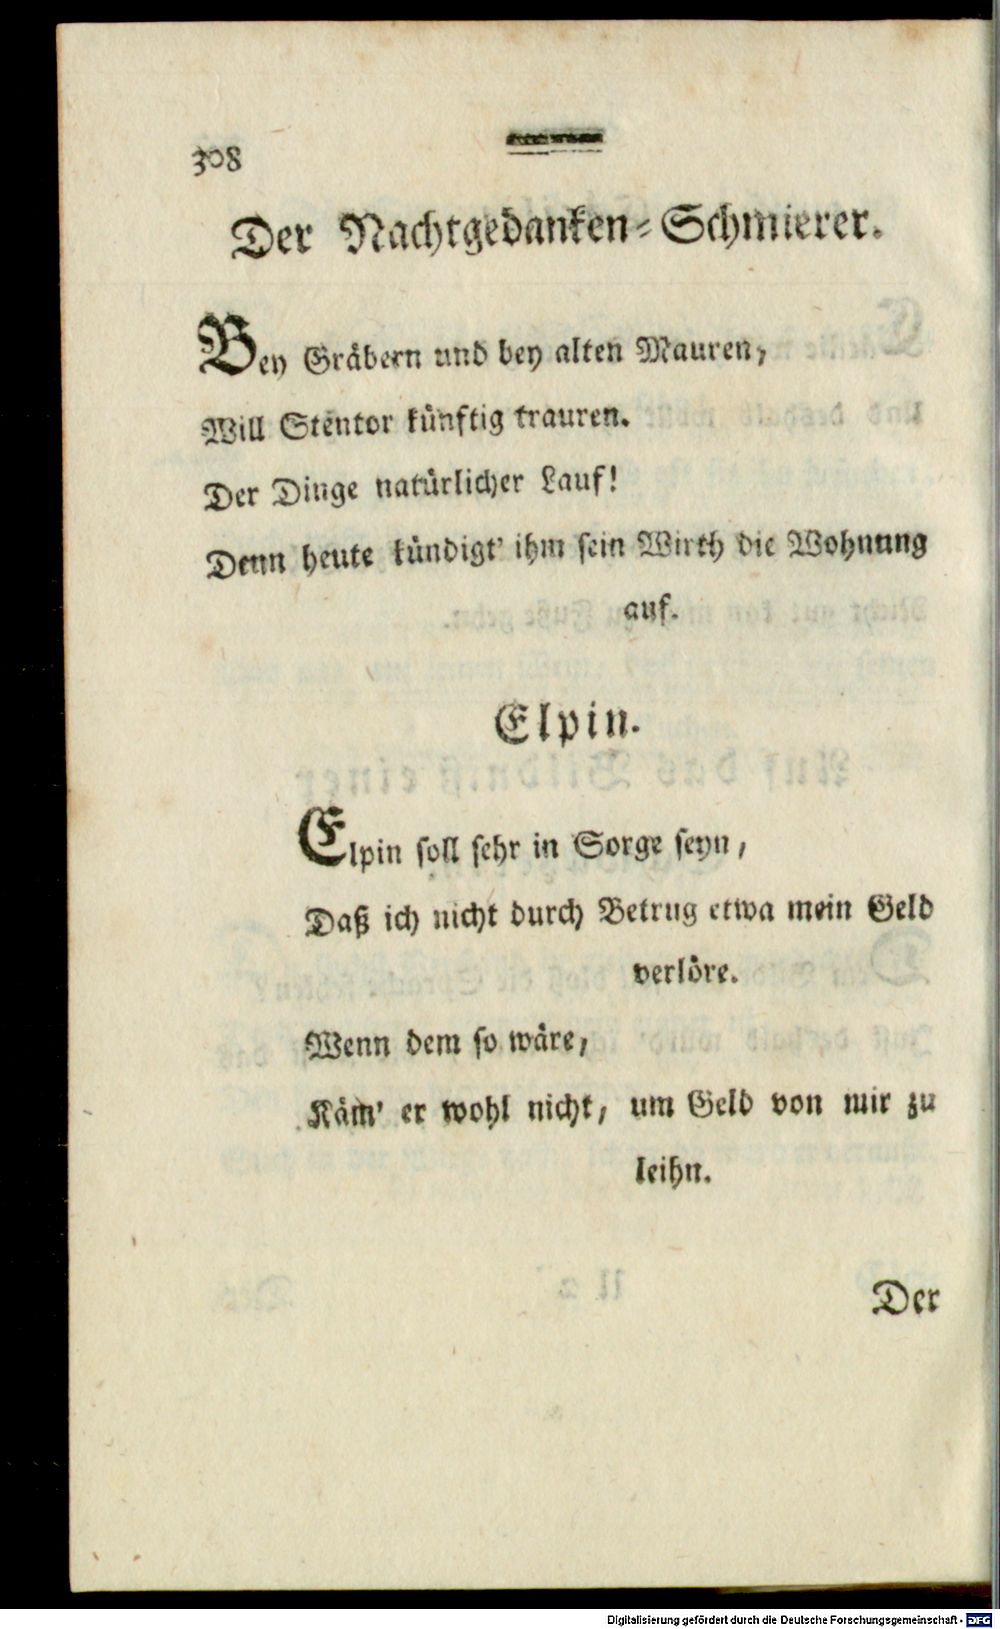 308
Der Nachtgedanken-Schmierer.
Bey Gräbern und bey alten Mauren,
Will Stentor künftig trauren.
Der Dinge natürlicher Lauf!
Denn heute kündigt' ihm sein Wirth die Wohnung
auf.
Elpin.
Elpin soll sehr in Sorge seyn,
Daß ich nicht durch Betrug etwa mein Geld
verlöre.
Wenn dem so wäre,
Käm' er wohl nicht, um Geld von mir zu
leihn.
Der
Digitalisierung gefördert durch die Deutsche Forschungsgemeinschaft - DFG